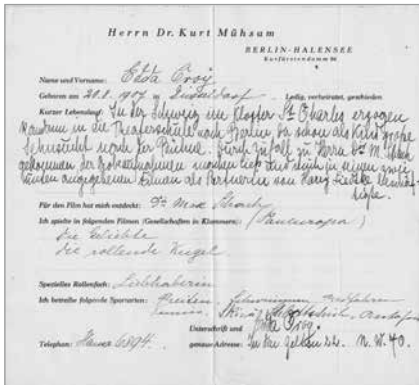 Herrn Dr. Kurt Mühsam
BERLIN-HALENSEE
Kurfürstendamm
Name und Vorname: Edda Croy
Geboren am 20.8.1907 in Düsseldorf Ledig, verheiratet, geschieden
Kurzer Lebenslauf: In der Schweiz im Kloster St. Charles erzogen
in die Theaterschule nach Berlin da schon als Kind große
Sehnsucht nach der Bühne. Durch Zufall zu Herrn Dr. M.
gekommen der Probeaufnahmen machen ließ und mich in einem
angegebenen Filmen als Partnerin von Harry Liedtke
Für den Film hat mich entdeckt: Dr. Max
Ich spielte in folgenden Filmen (Gesellschaften in Klammern): (Paneuropa)
die Geliebte
die rollende Kugel.
Spezielles Rollenfach: Liebhaberin
Ich betreibe folgende Sportarten: Reiten,
Unterschrift und Edda Croy.
Telephon: Hansa 6894. genaue Adresse: In den Zelten 22. N.W. 40.